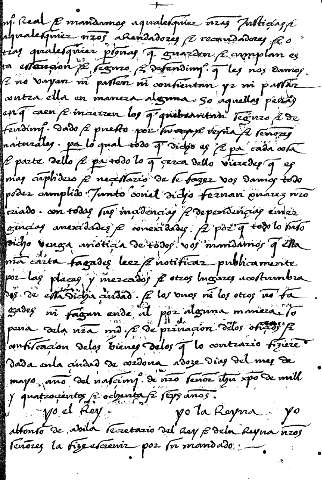 nj real e mandamos a qualesquier nras Justiçias e
alqualesquier nros Arrendadores e recabdadores e o
tras qualesquier p̃sonas q̃ guarden e cumplan es
ta essençion e seguro e defendimjº q̃ les nos damos
e no vayan nj passen nj consientan yr nj passar
contra ella en manera alguna. so aquellas penas
en q̃ caen e incurren los q̃ quebrantan seguro e de
fendimjº. dado e puesto por su rey e reyna e señores
naturales. pa lo qual todo q̃ dicho es e pa cada cosa
e parte dello e pa todo lo q̃ çerca dello vieredes q̃ es
mas cunplidero e nesçesario de se fazer vos damos todo
poder cumplido Junto con el dicho fernan nuñez mro
criado. con todas sus inçidençias e dependençias emer
gençias anexidades e conexidades. e porq̃ todo lo suso
dicho venga a notiçia de todos. vos mandamos q̃ esta
nra carta fagades leer e notificar publicamente
por las plaças y mercados e otros lugares acostumbra
dos. de esta dicha çiudad. e los vnos nj los otros no fa
gades nj fagan ende al por alguna manera so
pena dela nra md̃ e de priuaçion delos ofiçios e
confiscaçion delos bienes delos q̃ lo contrario fizierẽ
dada enla çiudad de cordoua a doze dias del mes de
mayo. año del nasçimjº de nro señor ihu xpo de mill
y quatroçientos e ochenta e seys años.
yo el Rey. yo la Reyna. yo
alfonso de auila secretario del Rey e dela Reyna nros
señores la fize escreuir por su mandado.